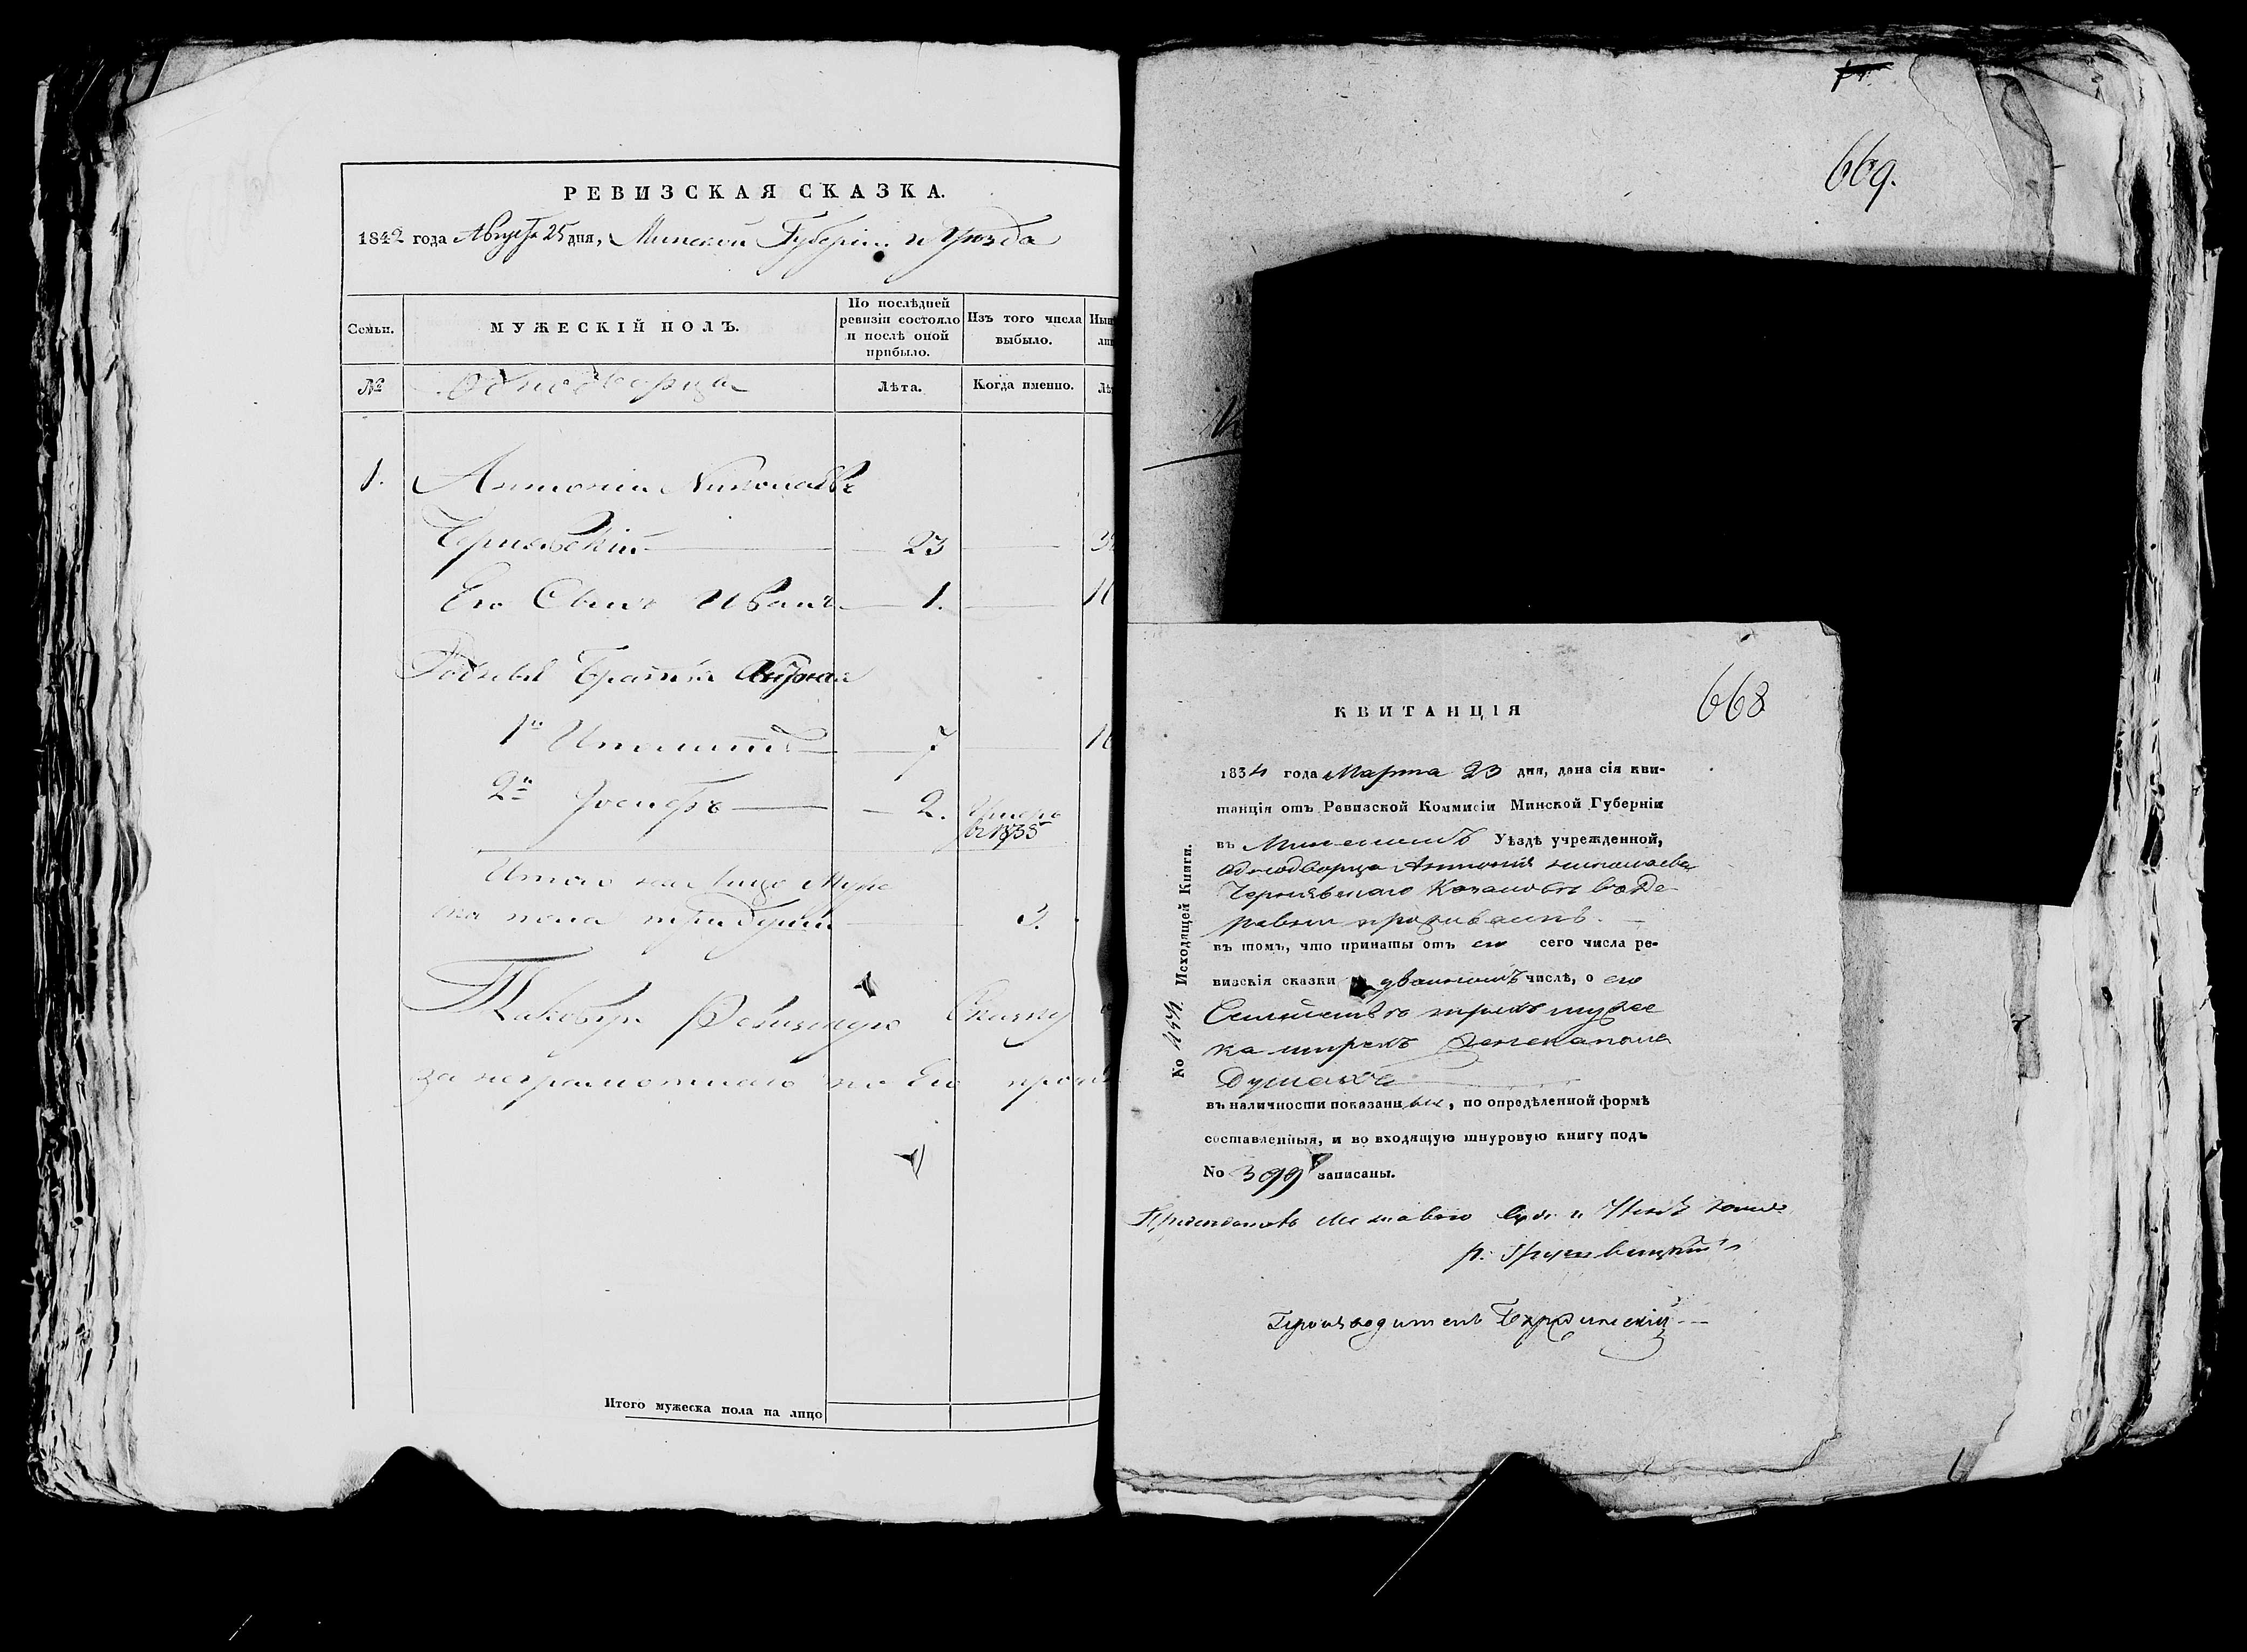 РЕВИЗСКАЯ СКАЗКА.
1842 года Августа 25 дня, Минской Губернiи и Уѣзда
Семьи.
МУЖЕСКIЙ ПОЛЪ.
По послѣдней
ревизiи состояло
и послѣ оной
прибыло.
Изъ того числа
выбыло.
№
Однодворца
Лѣта.
Когда именно.
1. Антонiй Николаевъ
Чернявскiй 23
Его Сынъ Иванъ 1.
Родныя Братья Антона
1й 7
2й Iосифъ 2. Умеръ
въ 1835
Итого на лицо Муже
ска пола три души 3.
Таковую Ревизскую Сказку
за неграмотнаго по Его
Итого мужеска пола на лицо
669.
668
КВИТАНЦIЯ
1834 года Марта 23 дня, дана сiя кви-
танцiя отъ Ревизской Коммисiи Минской Губернiи
въ Минскомъ Уѣздѣ учрежденной,
однодворца Антонiя николаева
Чернявскаго во Де
ревни
въ томъ, что приняты отъ его сего числа ре-
визскiя сказки въ двойномъ числѣ, о его
Семействѣ трехъ мужес
ка и трехъ женска пола
Душахъ
въ наличности показанные, по опредѣленной формѣ
составленныя, и во входящую шнуровую книгу подъ
No 399 записаны.
No 444 Исходящей Книги.
Производитель